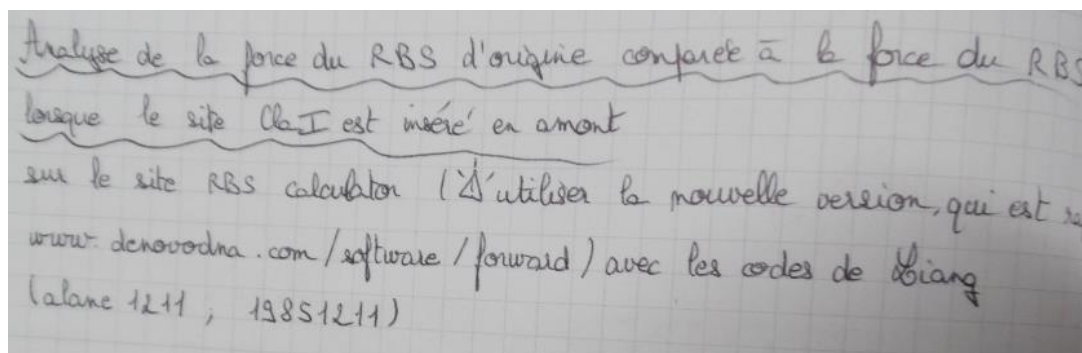 Analyse de la force du RBS d'origine comparée à la force du RBS
lorsque le site ClaI est inséré en amont
sur le site RBS calculator (⚠ d'utiliser la nouvelle version, qui est
www.denovodna.com/software/forward) avec les codes de Xiang
(alane 1211 ; 19851211)